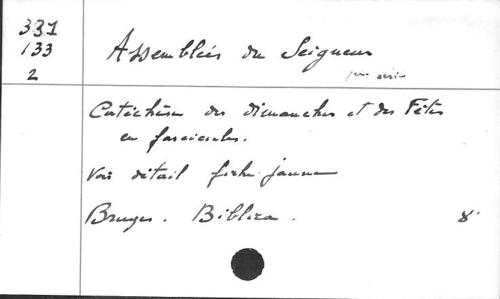 331
133
2
Assemblées du Seigneur
1ère série
Catéchèse des dimanches et des Fêtes
en fascicules.
Voir détail fiche jaune
Bruges. Biblica. 8°